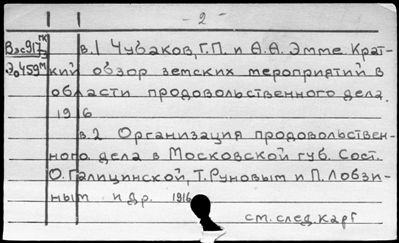 - 2 -
в.1 Чубаков, Г.П. и А.А. Эмме. Крат-
кий обзор земских мероприятий в
области продовольственного дела.
1916
в.2 Организация продовольствен-
ного дела в Московской губ. Сост.
О. Галицинской, Т. Руновым и П. Лобзи-
ным и др. 1916
см. след. карт